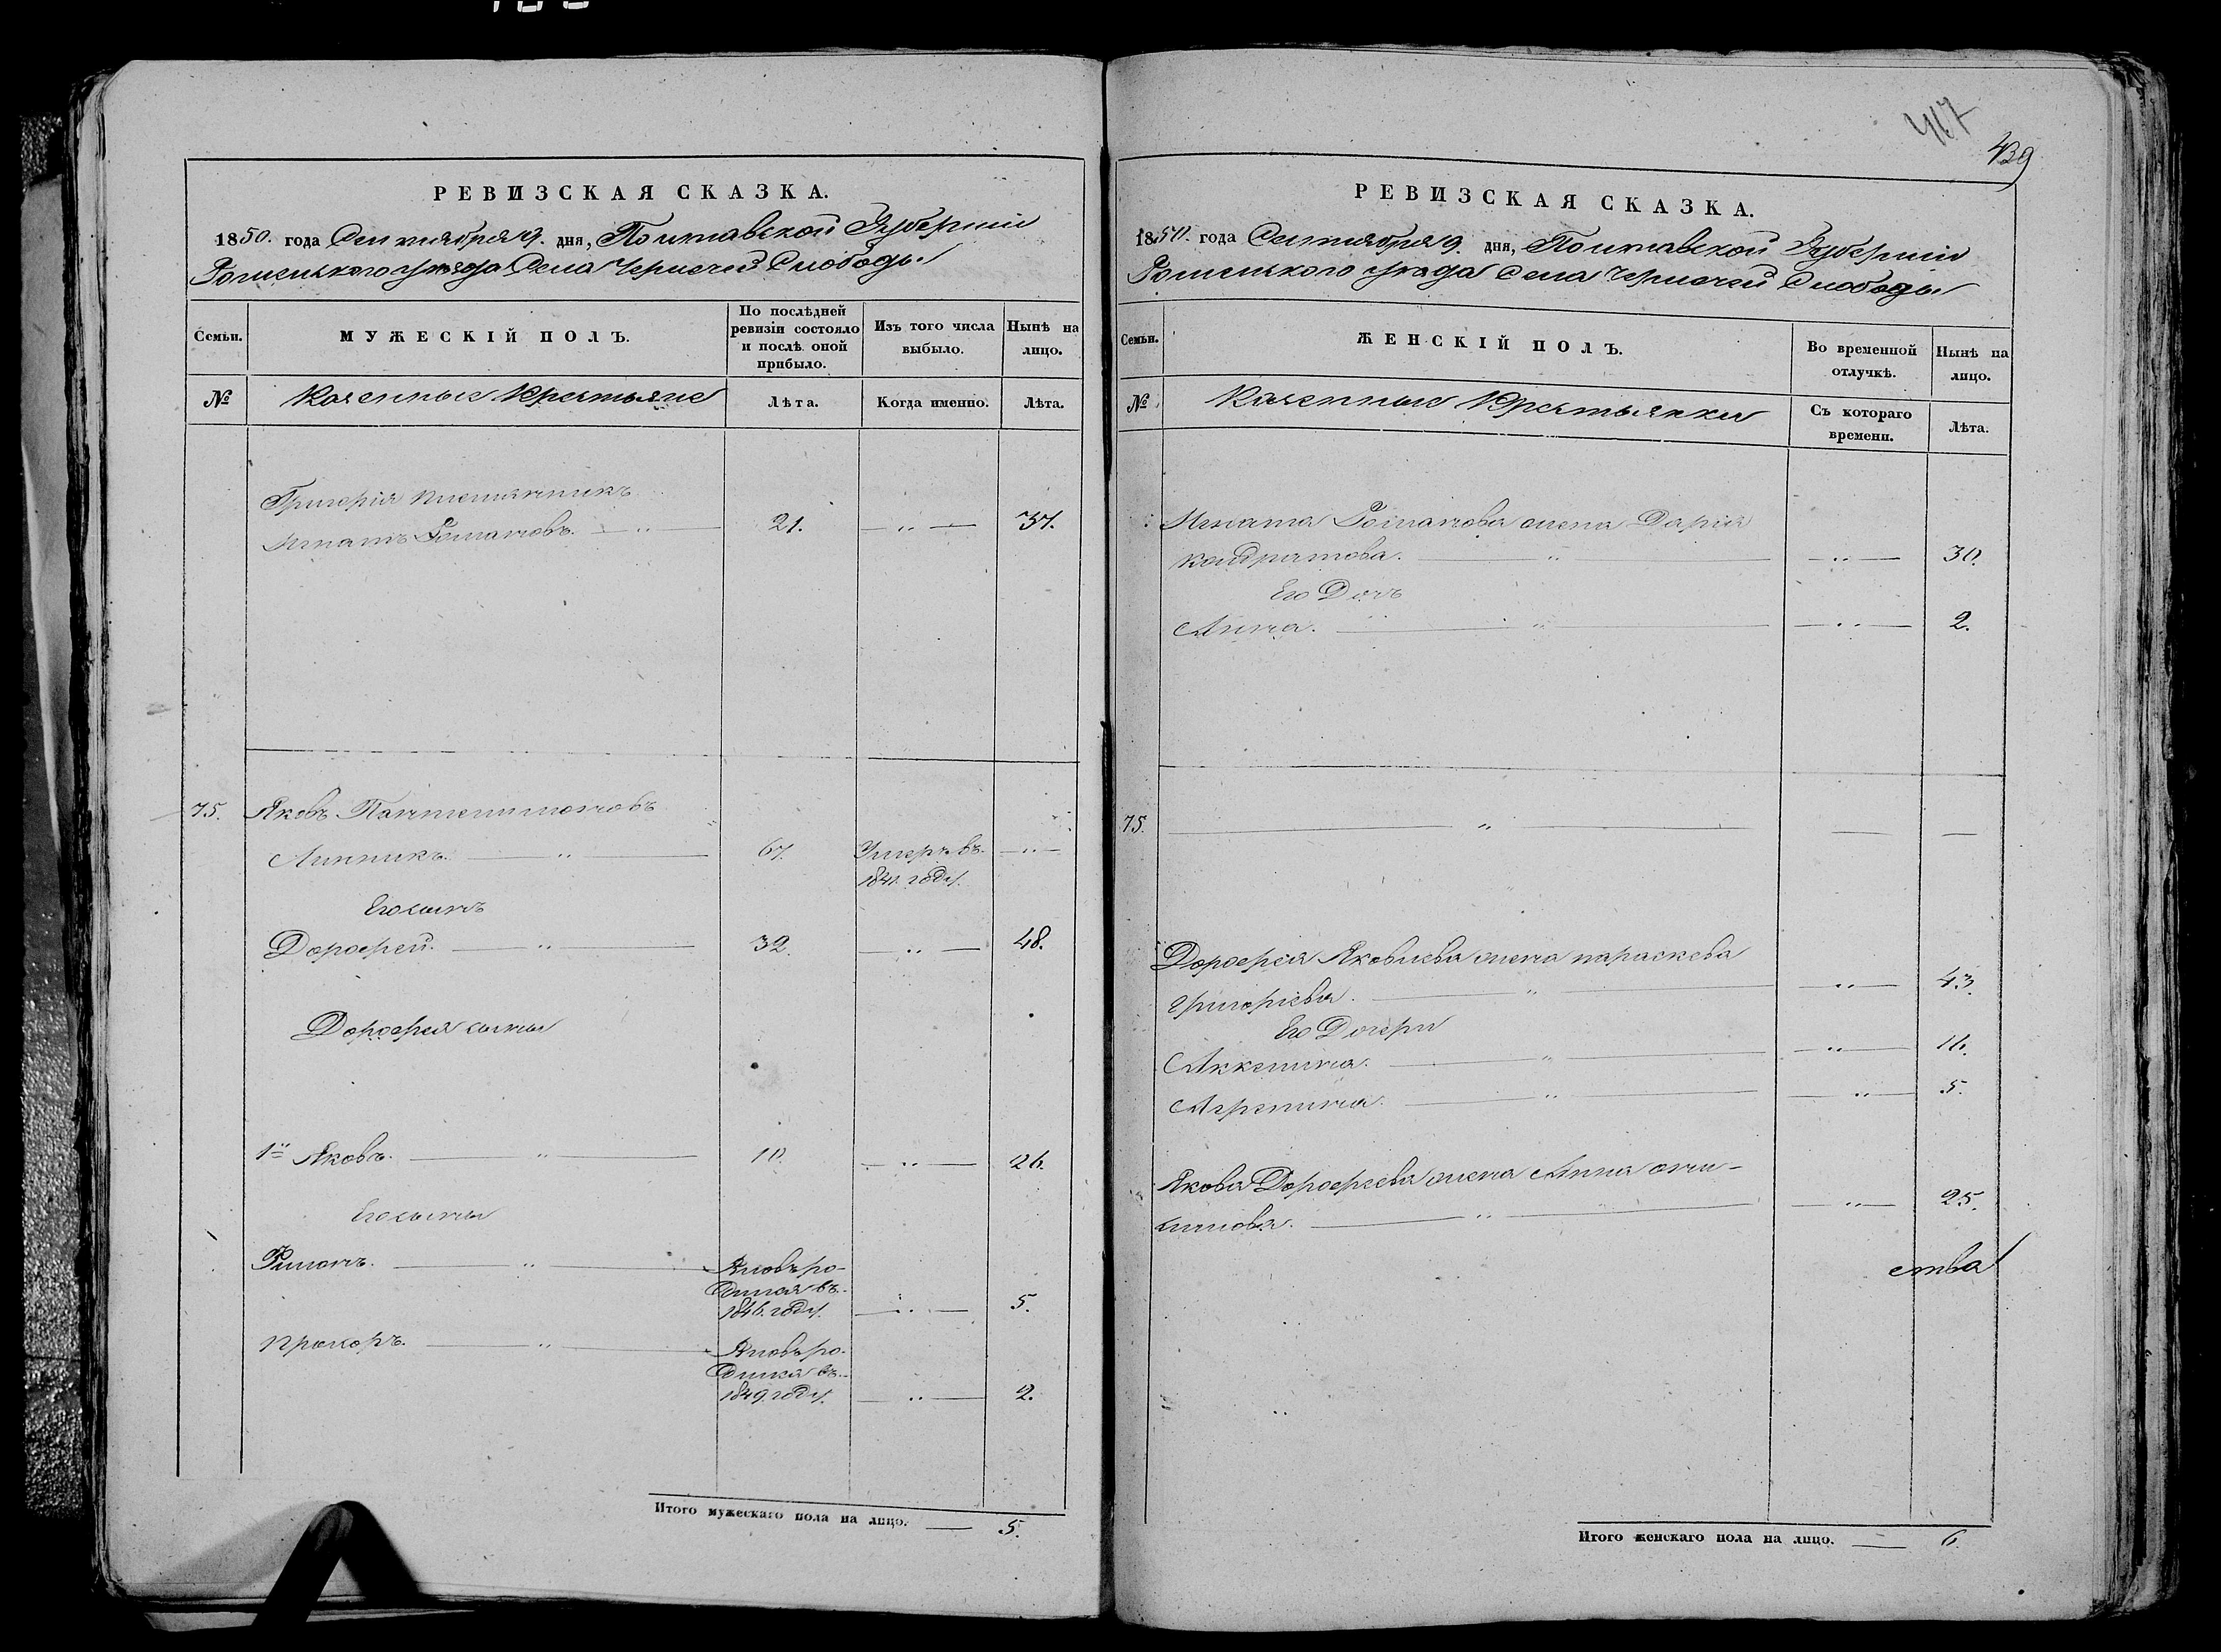 467
439
РЕВИЗСКАЯ СКАЗКА.
1850. года Сентября 9. дня, Полтавской Губерніи
Роменскаго уѣзда Села Чернечей Слободы
Семьи.
МУЖЕСКІЙ ПОЛЪ.
По послѣдней ревизіи состояло и послѣ оной прибыло.
Изъ того числа выбыло.
Нынѣ на лицо.
№
Казенные Крестьяне
Лѣта.
Когда именно.
Лѣта.
Григорія племянникъ
Игнатъ Романовъ. 21. 37.
75. Яковъ Пантелимоновъ
Линникъ. 67. Умеръ въ
1841. году.
Его сынъ
Дорофей. 32. 48.
Дорофея сыны
1й Яковъ. 10. 26.
Его сыны
Филонъ. Вновь ро-
дился въ
1846. году. 5.
Прокоръ. Вновь ро-
дился въ
1849. году. 2.
Итого мужескаго пола на лицо. 5.
РЕВИЗСКАЯ СКАЗКА.
1850. года Сентября 9. дня, Полтавской Губерніи
Роменскаго уѣзда Села Чернечей Слободы
Семьи.
ЖЕНСКІЙ ПОЛЪ.
Во временной отлучкѣ.
Нынѣ на лицо.
№
Казенные Крестьянки
Съ котораго времени.
Лѣта.
Игната Романова жена Дарія
Кондратова. 30.
Его Дочь
Анна. 2.
75.
Дорофея Яковлева жена параскева
Григоріева. 43.
Его Дочери
Аксенина. 16.
Агрепина. 5.
Якова Дорофеева жена Анна
25.
ства
Итого женскаго пола на лицо. 6.